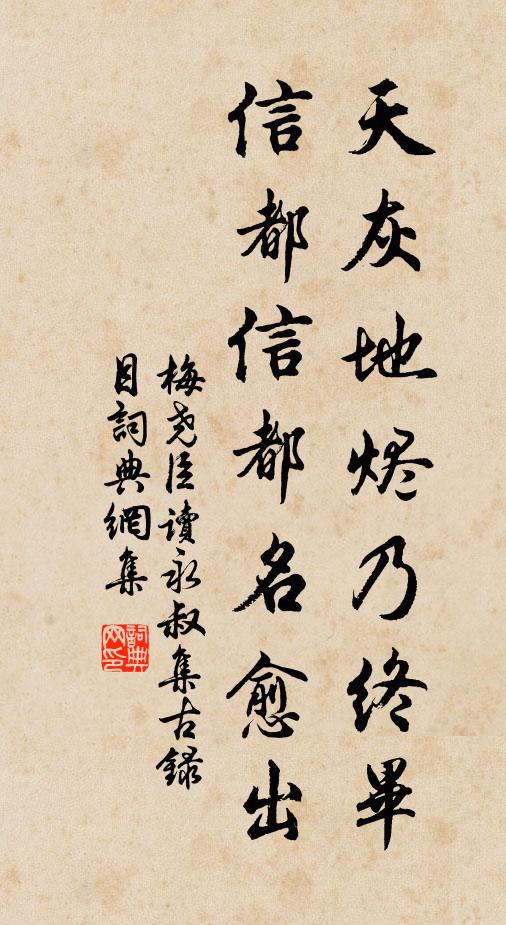 天灰地烬乃终畢
信都信都名愈出
梅尧臣讀永叔集古録
目詞典網集
詞典网印